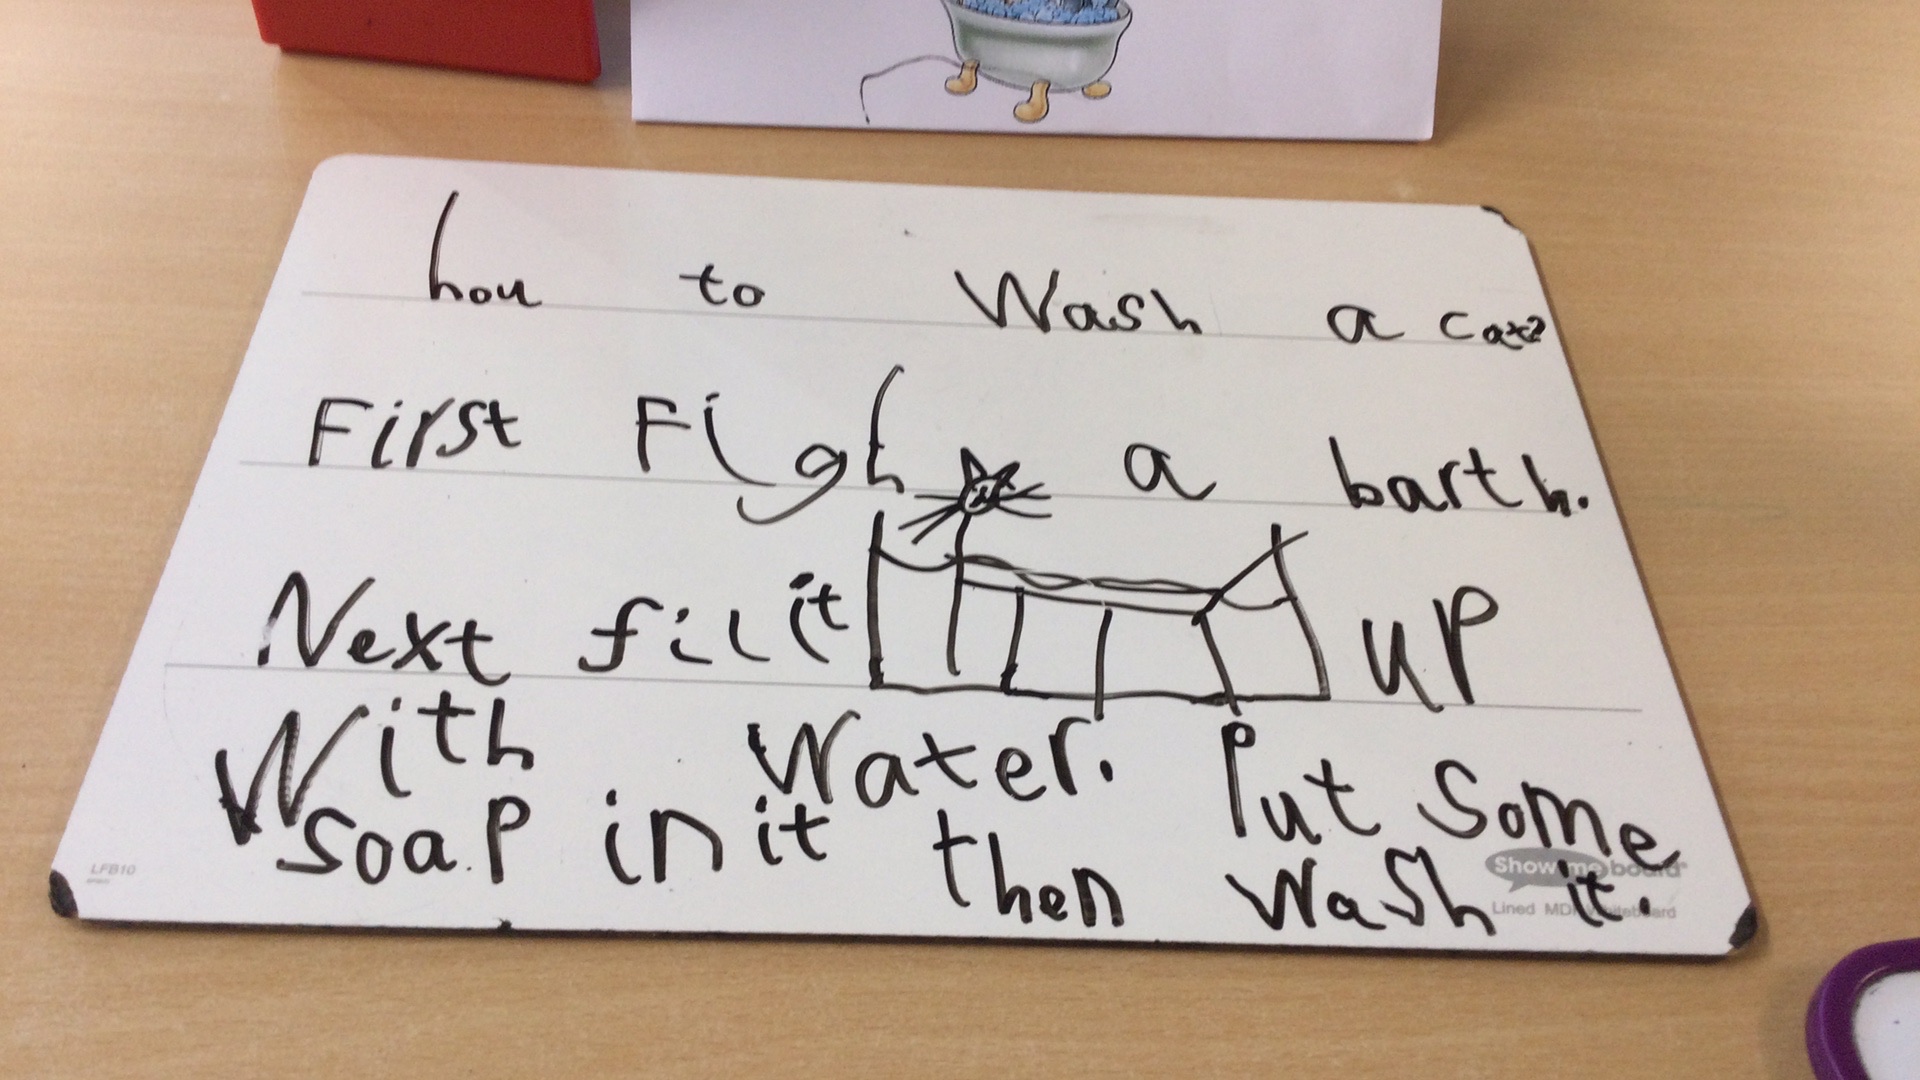 hou to Wash a cat?
First Figh a barth.
Next fil it up
With Water. Put some
soap in it then Wash it.
LFB10
Show me board
Lined MDF Whiteboard